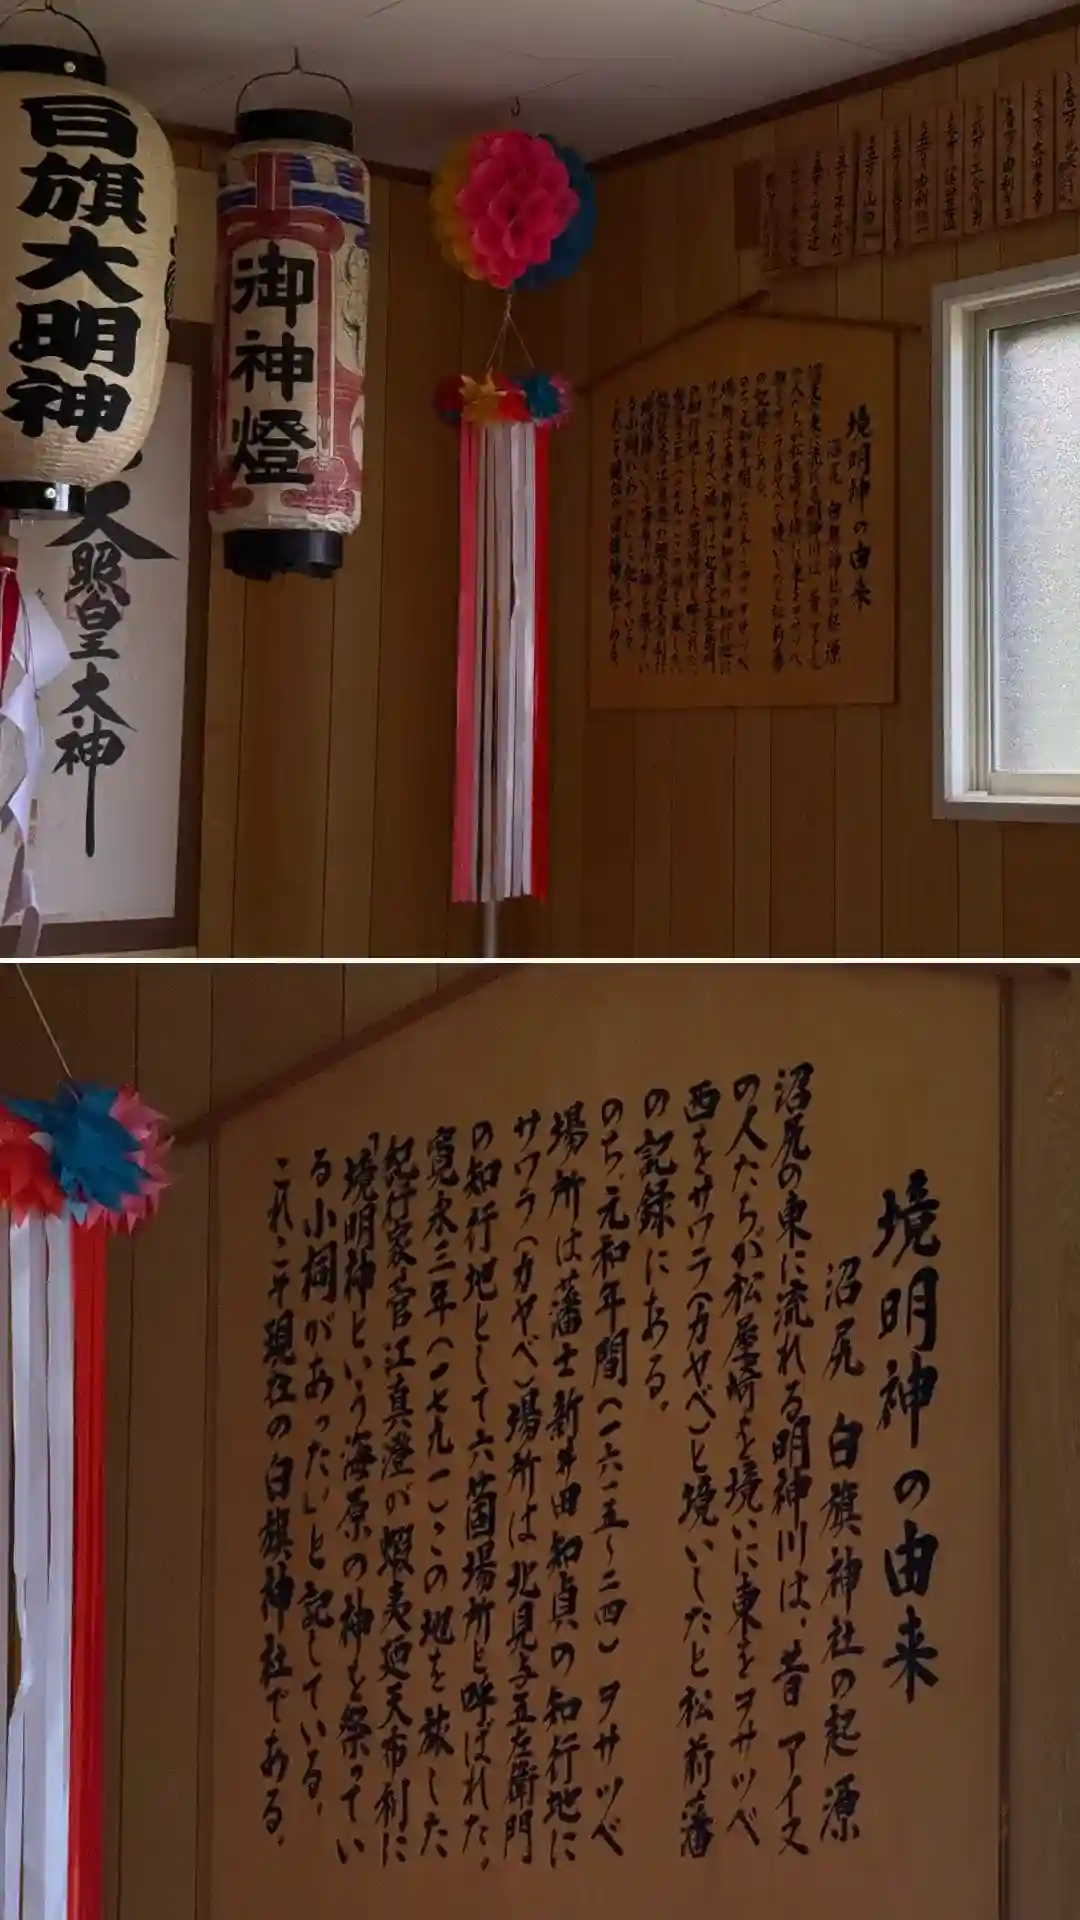 白旗大明神
御神燈
天照皇大神
境明神の由来
沼尻 白旗神社の起源
沼尻の東に流れる明神川は、昔アイヌ
の人たちが松屋崎を境いに東をヲサツベ
西をサワラ(カヤベ)と境いしたと松前藩
の記録にある。
のち、元和年間(一六一五〜二四)ヲサツベ
場所は藩士新井田知貞の知行地に
サワラ(カヤベ)場所は北見与五左衛門
の知行地として六箇場所と呼ばれた。
寛永三年(一七九一)この地を旅した
紀行家菅江真澄が蝦夷廼天布利に
「境明神という海原の神を祭ってい
る小祠があった。」と記している。
これこそ現在の白旗神社である。